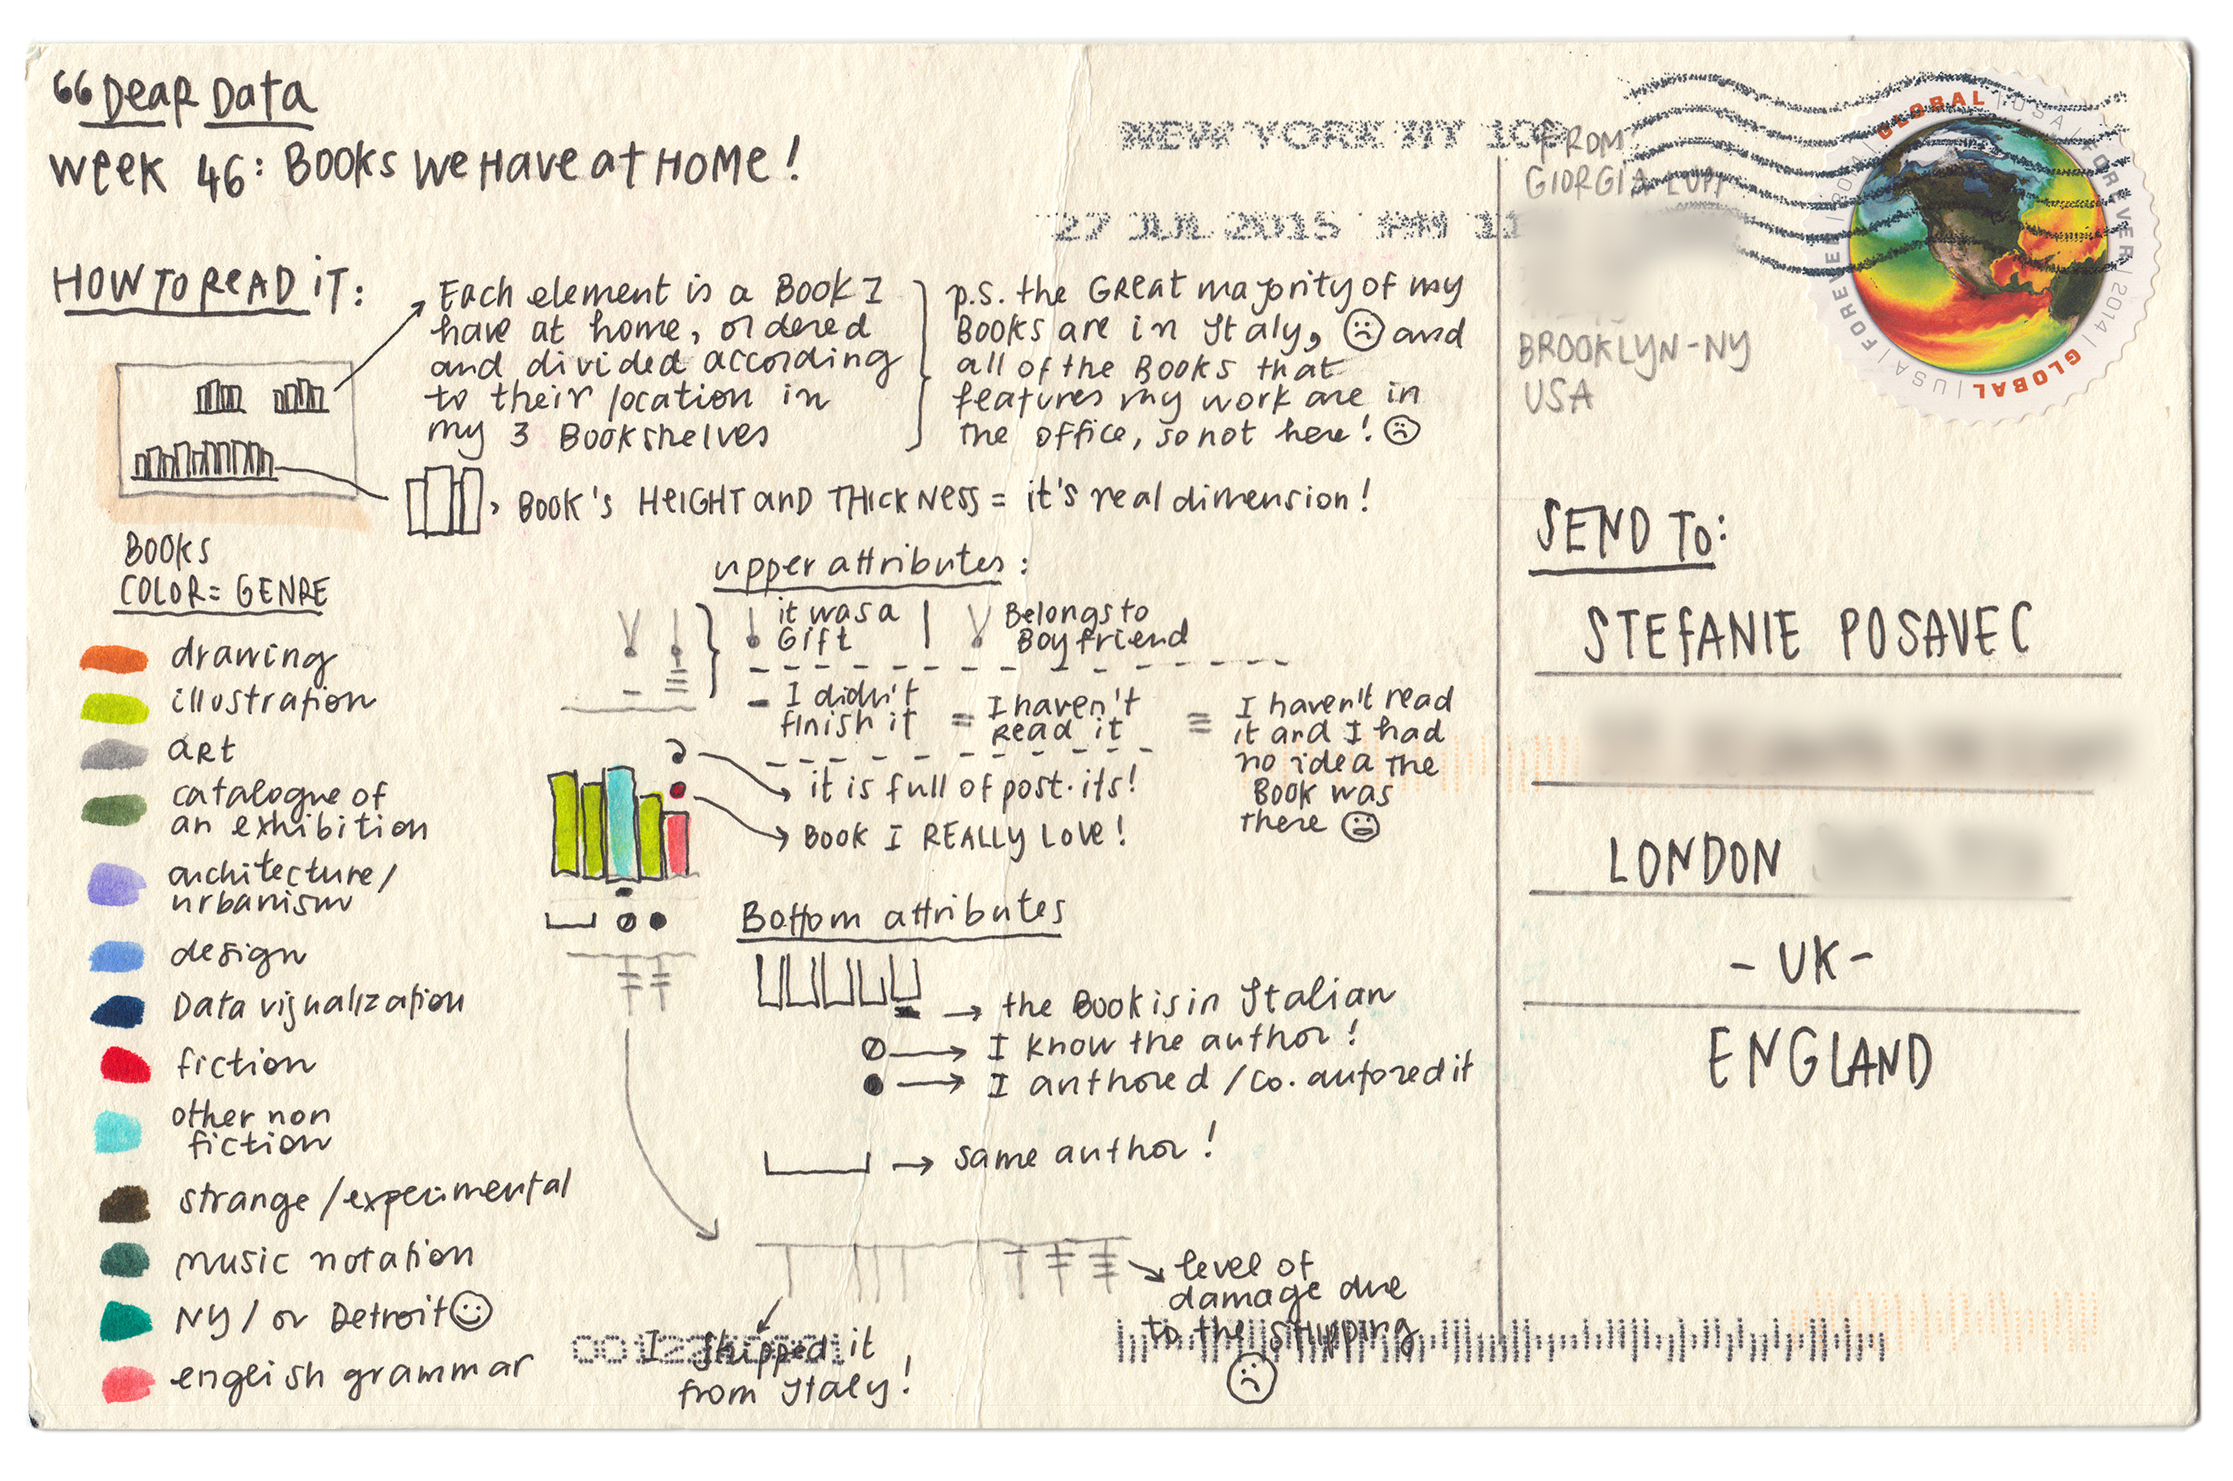 “Dear Data
Week 46: Books we have at home!
NEW YORK NY 100
27 JUL 2015 PM 11
How to read it:
Each element is a Book I
have at home, ordered
and divided according
to their location in
my 3 Bookshelves
p.s. the great majority of my
Books are in Italy, ☹ and
all of the Books that
features my work are in
the office, so not here! ☹
Book's Height and Thickness = it's real dimension!
Books
Color = Genre
drawing
illustration
art
catalogue of
an exhibition
architecture/
urbanism
design
Data visualization
fiction
other non
fiction
strange/experimental
music notation
NY/or Detroit ☺
english grammar
upper attributes:
it was a
Gift
Belongs to
Boyfriend
- I didn't
finish it
= I haven't
read it
≡ I haven't read
it and I had
no idea the
Book was
there
it is full of post-its!
Book I REALLY Love!
Bottom attributes
→ the Book is in Italian
→ I know the author!
→ I authored/co. autored it
→ same author!
I shipped it
from Italy!
level of
damage due
to the shipping
☹
FROM
GIORGIA LUPI
BROOKLYN-NY
USA
GLOBAL | USA | FOREVER | 2014 | GLOBAL | USA | FOREVER
SEND TO:
STEFANIE POSAVEC
LONDON
- UK -
ENGLAND